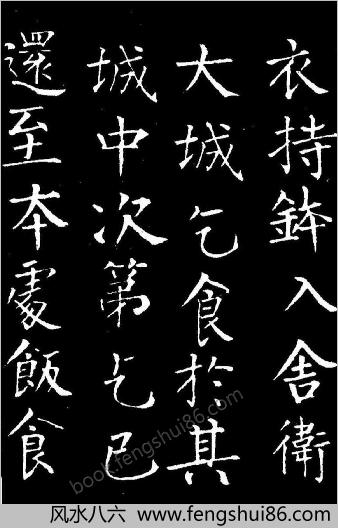 衣持鉢入舍衛
大城乞食於其
城中次第乞已
還至本處飯食
book.fengshui86.com
风水八六 www.fengshui86.com